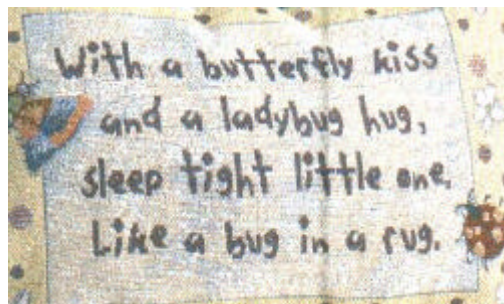 With a butterfly kiss
and a ladybug hug,
sleep tight little one,
Like a bug in a rug.